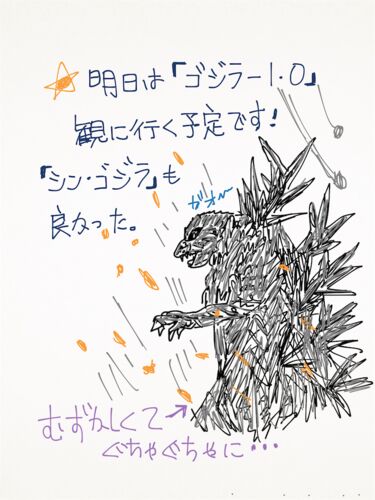 明日は「ゴジラ-1.0」
観に行く予定です!
「シン・ゴジラ」も
良かった。
ガオ〜
むずかしくて→
ぐちゃぐちゃに…